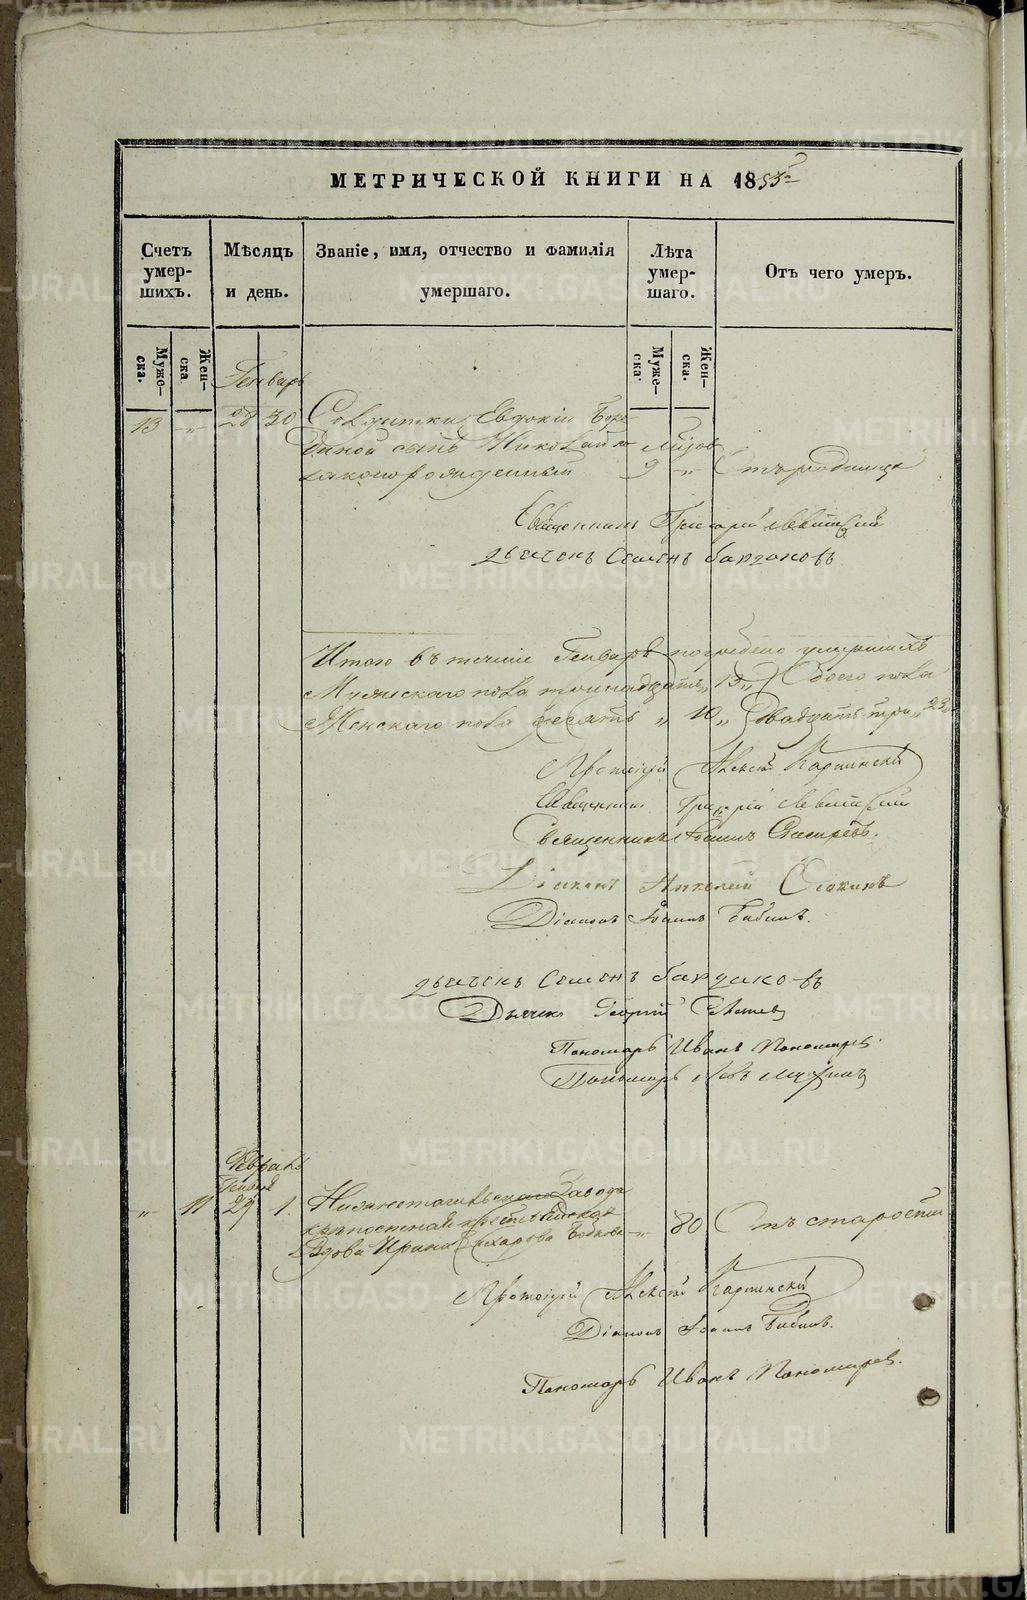 МЕТРИЧЕСКОЙ КНИГИ НА 1855 г
Счетъ умер-шихъ.
Мѣсяцъ и день.
Званіе, имя, отчество и фамилія умершаго.
Лѣта умер-шаго.
Отъ чего умеръ.
Муже-ска.
Жен-ска
Муже-ска.
Жен-ска.
Генварь
13 „ 28 30 Солдатки Евдокіи Боро-
диной сынъ Николай не
законорожденный 9 „ Отъ родимца
Священникъ Григорій Левитскій
Дьячекъ Семенъ Бардаковъ
Итого въ теченіе Генваря погребено умершихъ
Мужескаго пола тринадцать „ 13 „ Обоего пола
Женскаго пола десять „ 10 „ Двадцать три „ 23 „
Протоіерей Алексій Карпинскій
Священникъ Григорій Левитскій
Священникъ Іоаннъ
Діаконъ Николай
Діаконъ Іоаннъ Бабинъ.
Дьячекъ Семенъ Бардаковъ
Дьячекъ Георгій
Пономарь Иванъ Пономаревъ.
Пономарь
Февраль
Генваря
„ 11 29 1. Нижнетагильскаго Завода
крѣпостная крестьянская
Вдова Ирина Захарова „ 80 Отъ старости
Протоіерей Алексій Карпинскій
Діаконъ Іоаннъ Бабинъ.
Пономарь Иванъ Пономаревъ.
METRIKI.GASO-URAL.RU